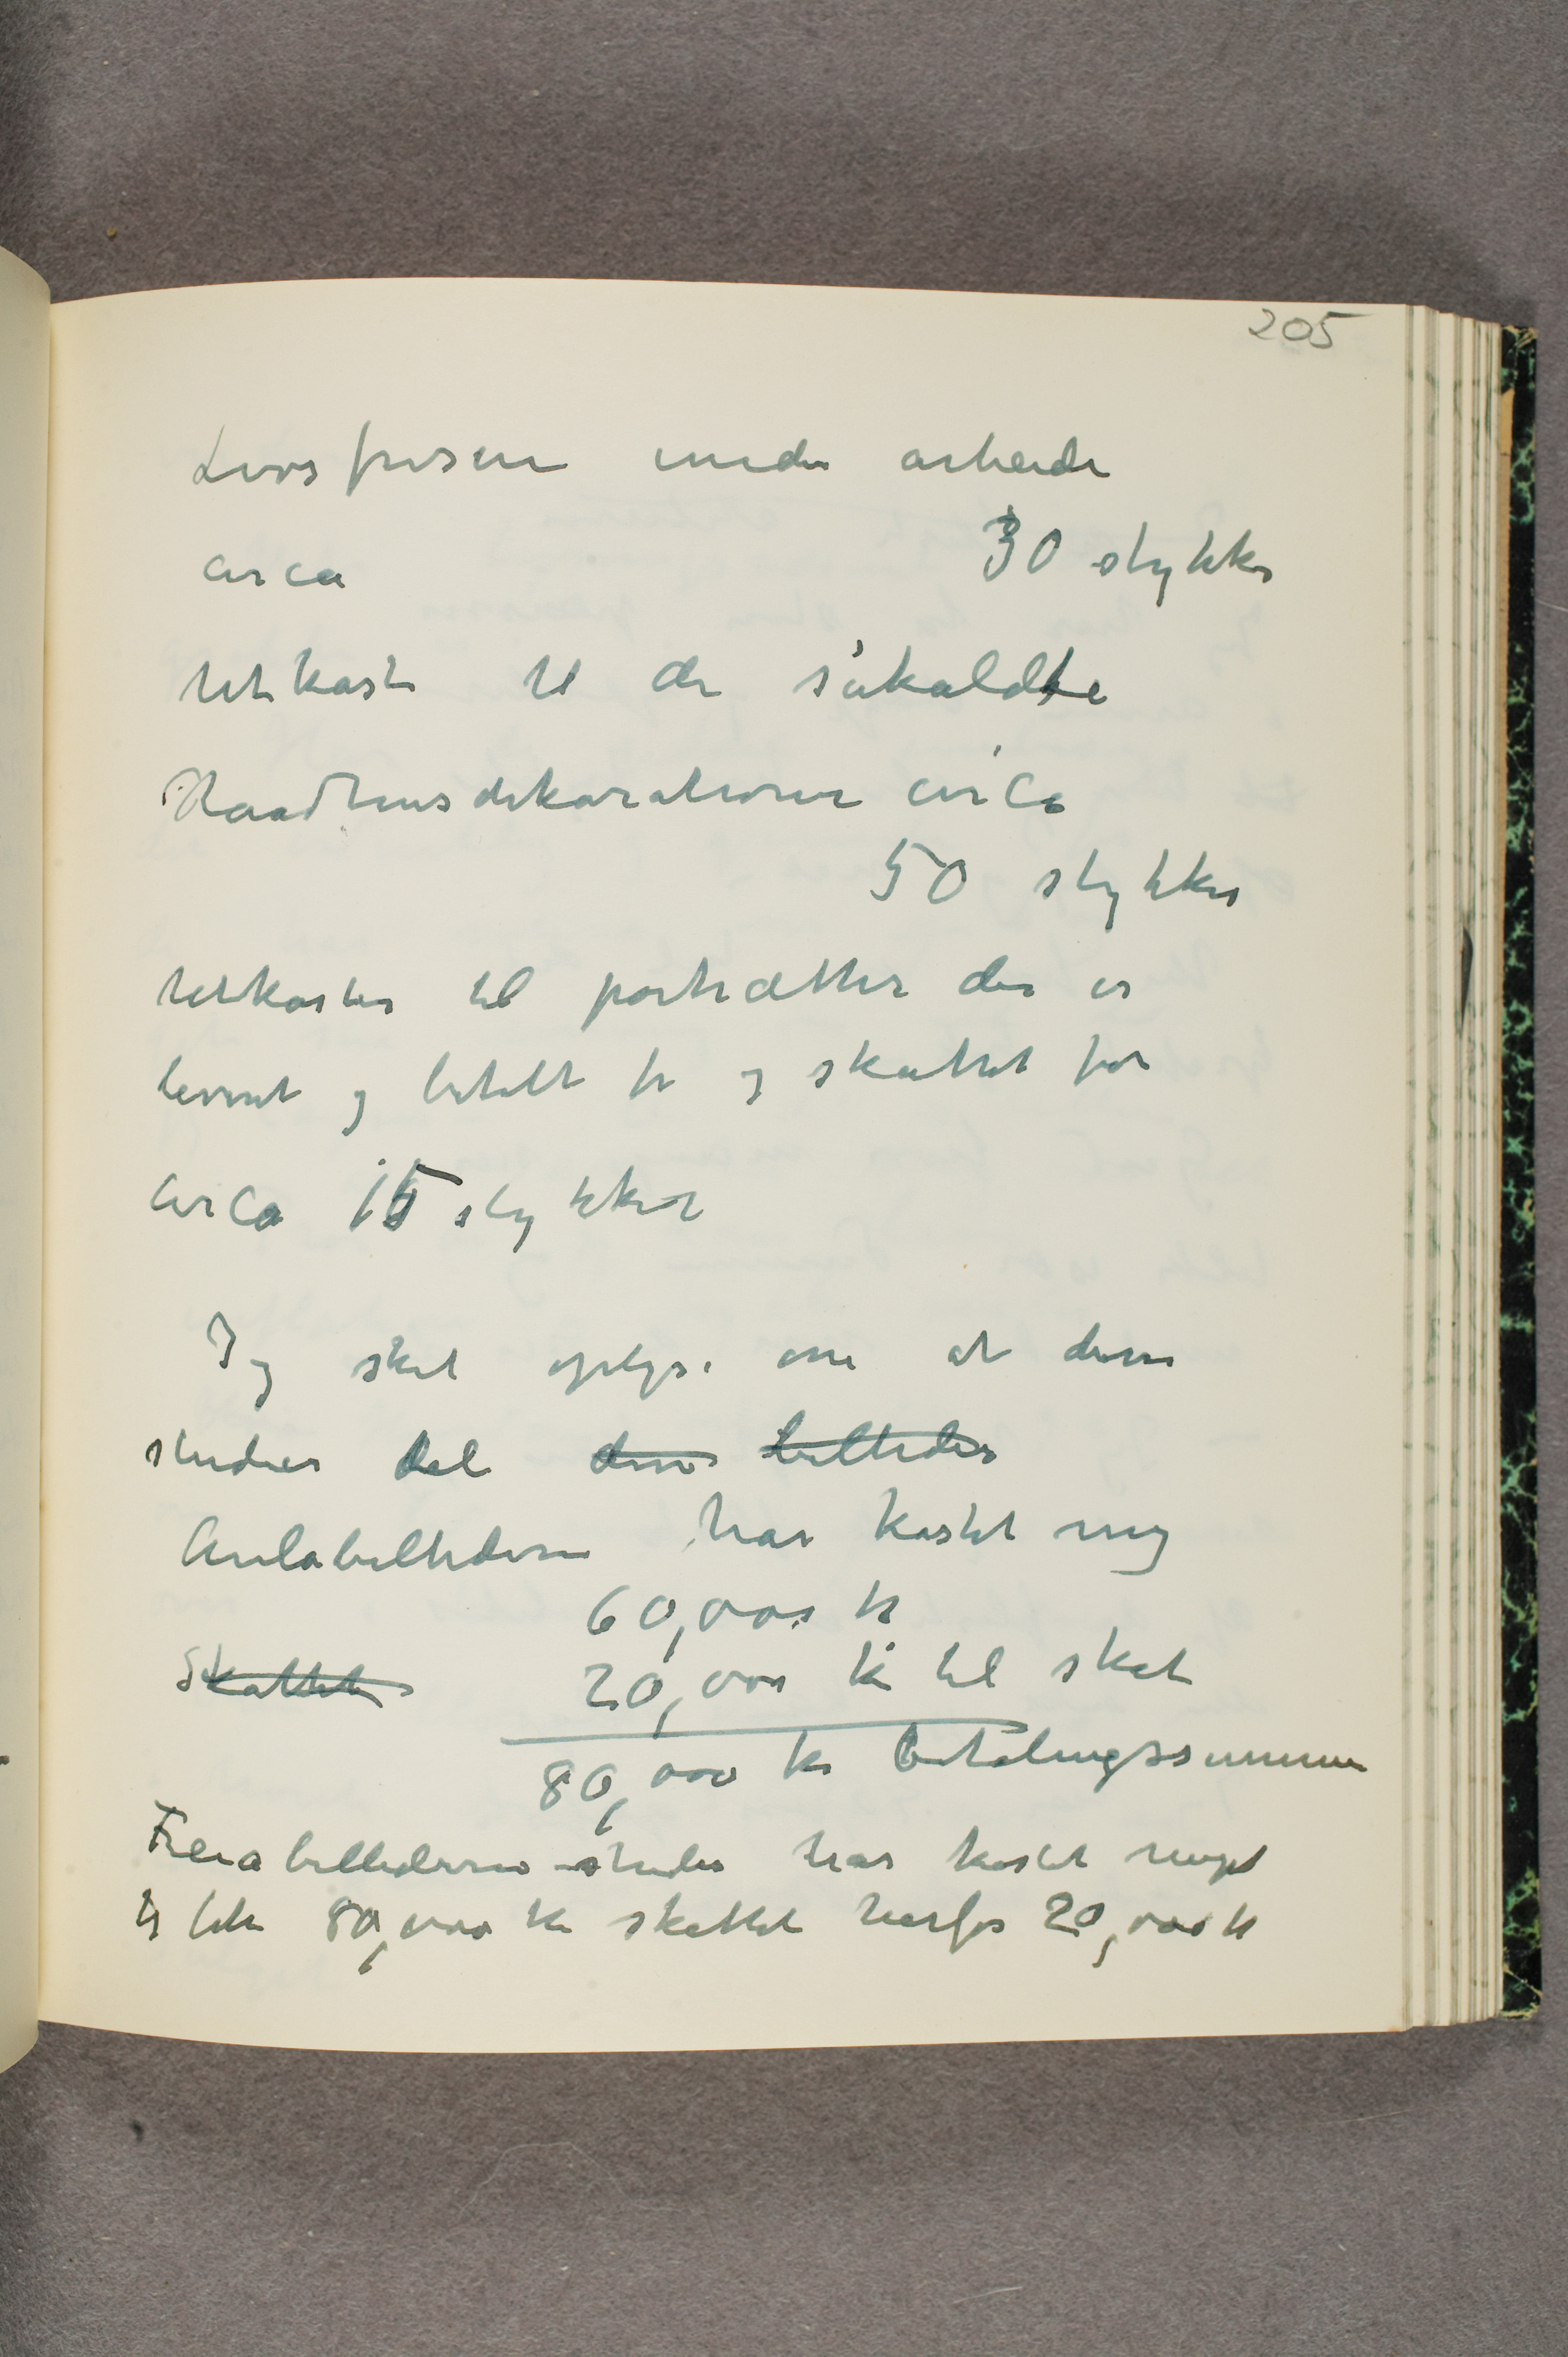 205
Livsfrisen under arbeide
circa 30 stykker
Utkast til de såkaldte
Raadhusdekorationer circa
50 stykker
Utkaster til portrætter der er
levert og betalt for og skattet for
circa 15 stykker
Jeg skal oplyse om at disse
studier til disse billeder
Aulabillederne har kostet mig
60,000 kr
Skattet 20,000 kr til skat
80,000 kr Betalingssummen
Freiabillederne studier har kostet meget
Jeg fik 80,000 kr skattet herfor 20,000 kr